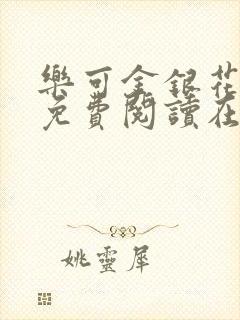 樂可金銀花
免費閱讀在
姚靈犀